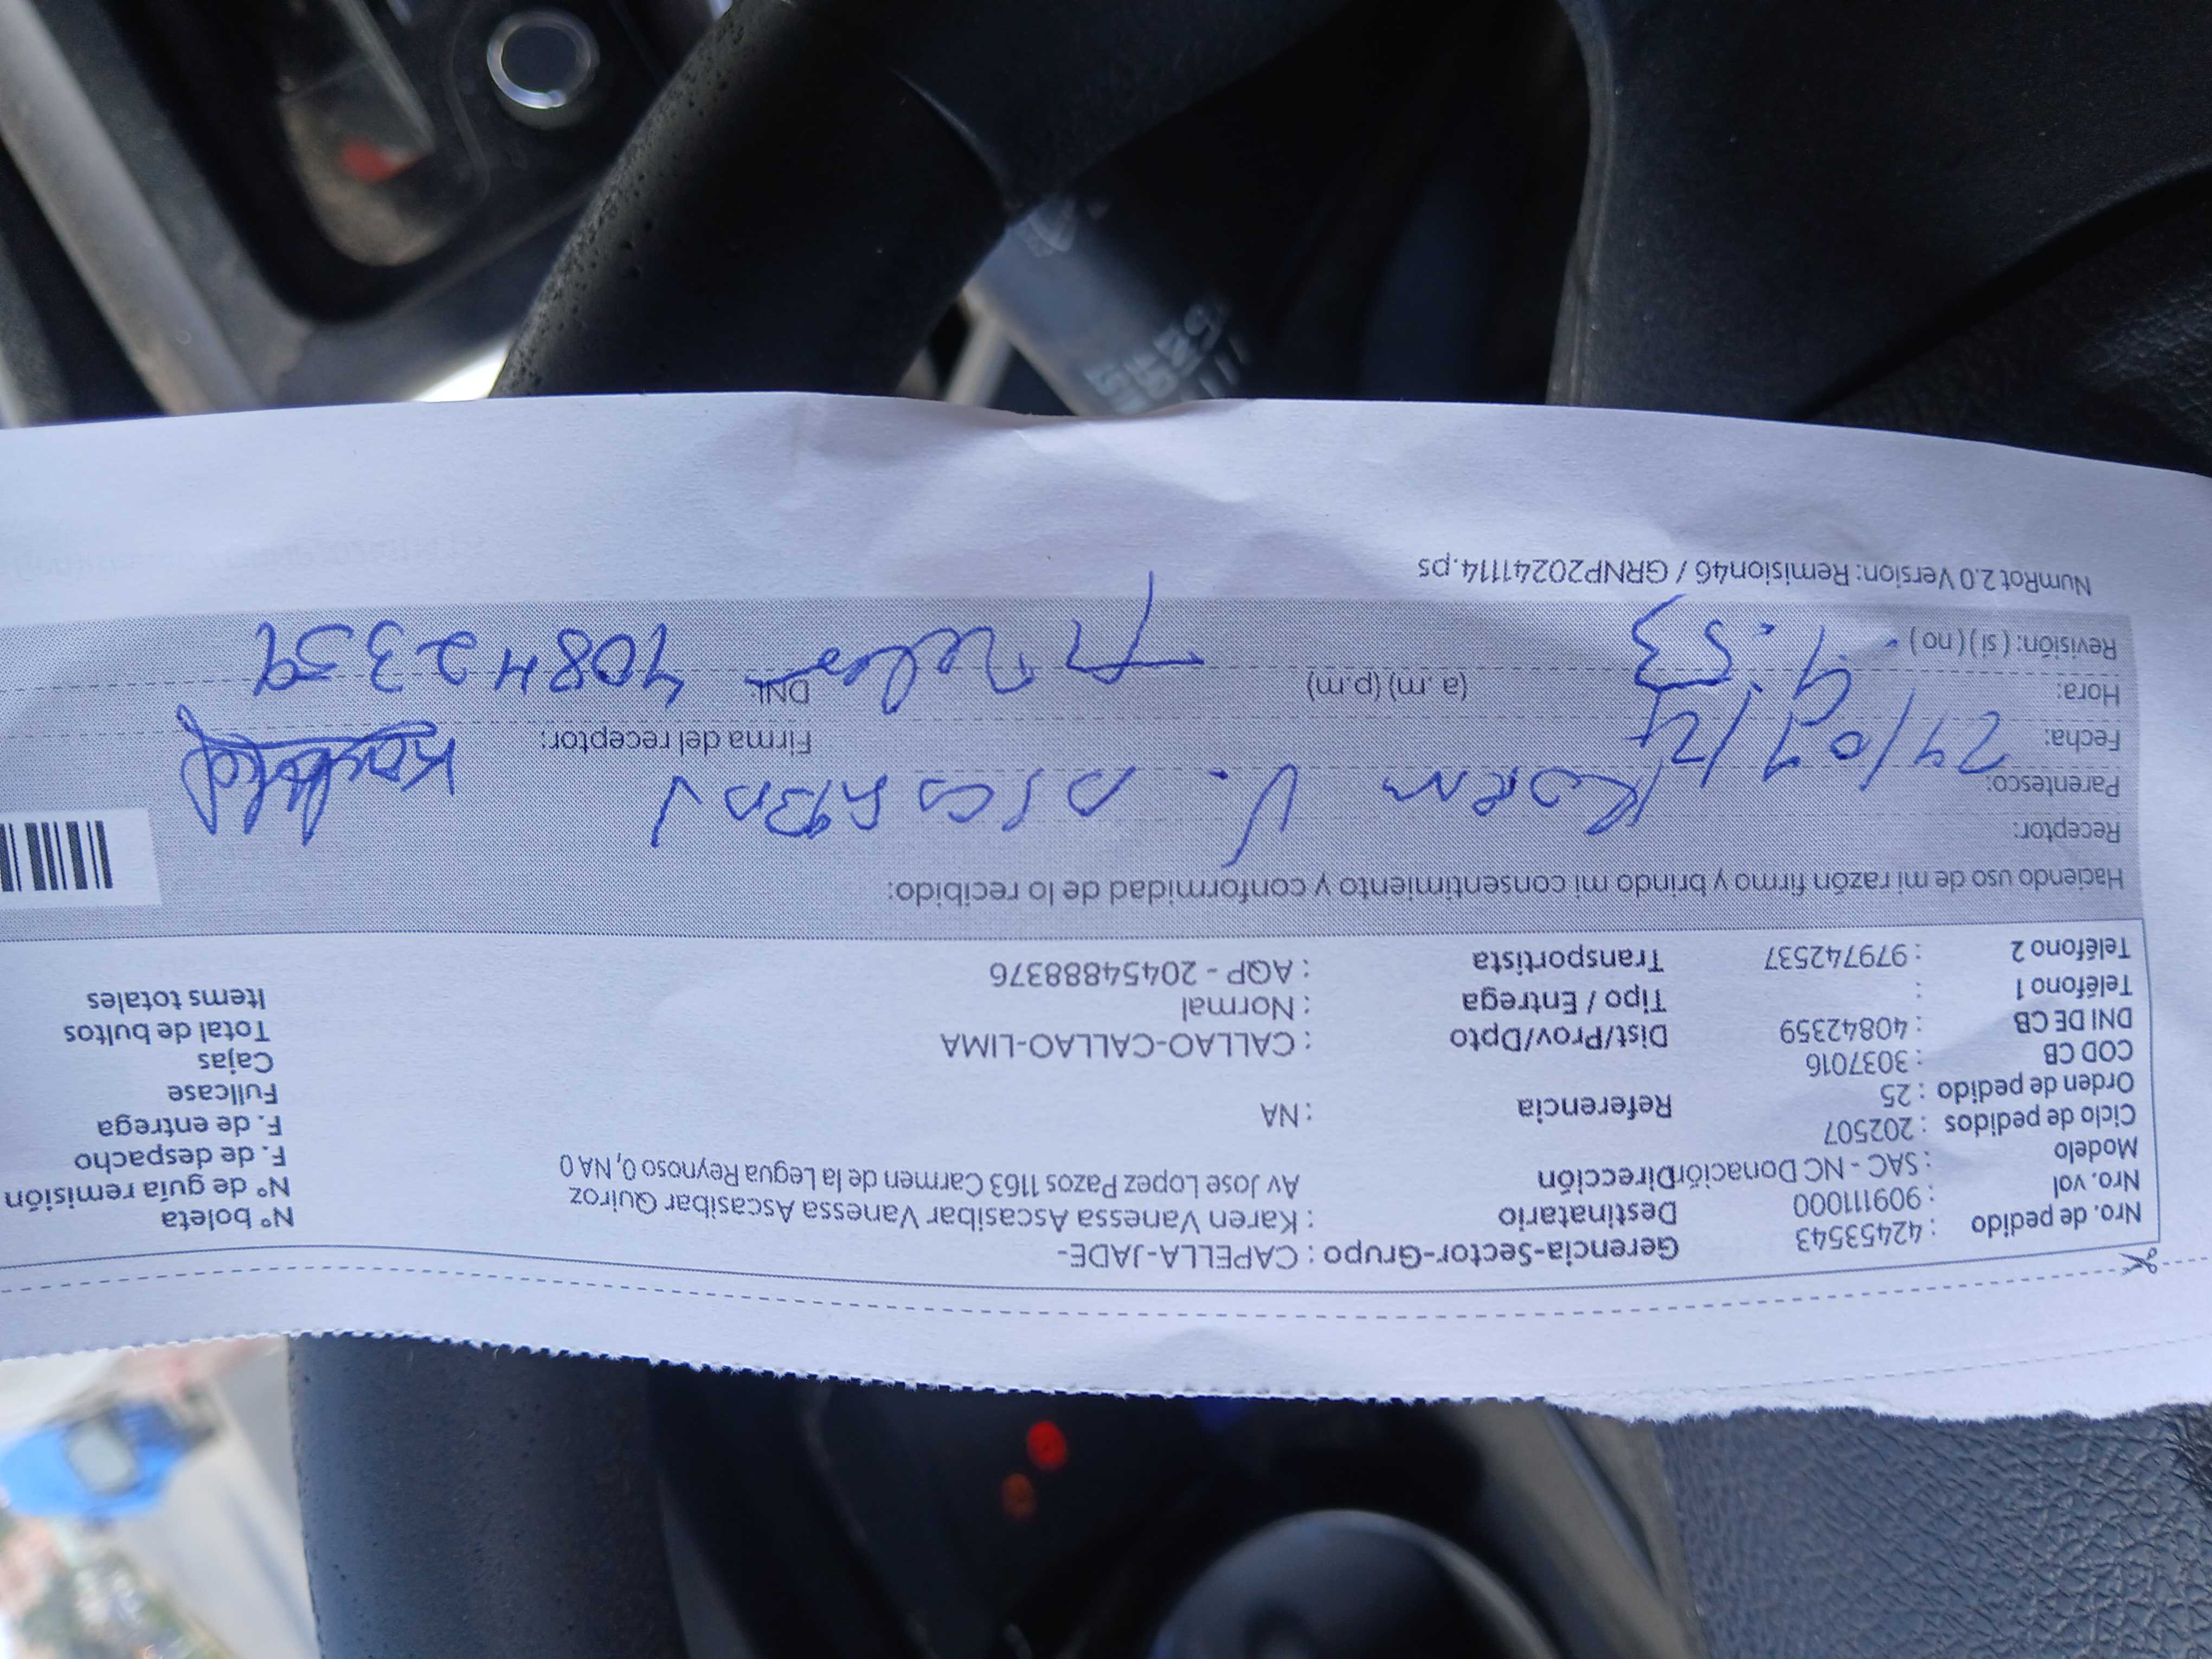 Gerencia-Sector-Grupo : CAPELLA-JADE-
Nro. de pedido : 42453543 Destinatario : Karen Vanessa Ascasibar Vanessa Ascasibar Quiroz N° boleta
Nro. vol : 909111000 Dirección Av Jose Lopez Pazos 1163 Carmen de la Legua Reynoso 0, NA 0 N° de guía remisión
Modelo : SAC - NC Donación F. de despacho
Ciclo de pedidos : 202507 Referencia : NA F. de entrega
Orden de pedido : 25 Fullcase
COD CB : 3037016 Dist/Prov/Dpto : CALLAO-CALLAO-LIMA Cajas
DNI DE CB : 40842359 Tipo / Entrega : Normal Total de bultos
Teléfono 1 : Transportista : AQP - 20454888376 Items totales
Teléfono 2 : 979742537
Haciendo uso de mi razón firmo y brindo mi consentimiento y conformidad de lo recibido:
Receptor: Karen V.
Parentesco:
Fecha: Firma del receptor:
Hora: 9:53 (a.m) (p.m) DNI: 40842359
Revisión: (si) (no)
NumRot 2.0 Version: Remision46 / GRNP20241114.ps